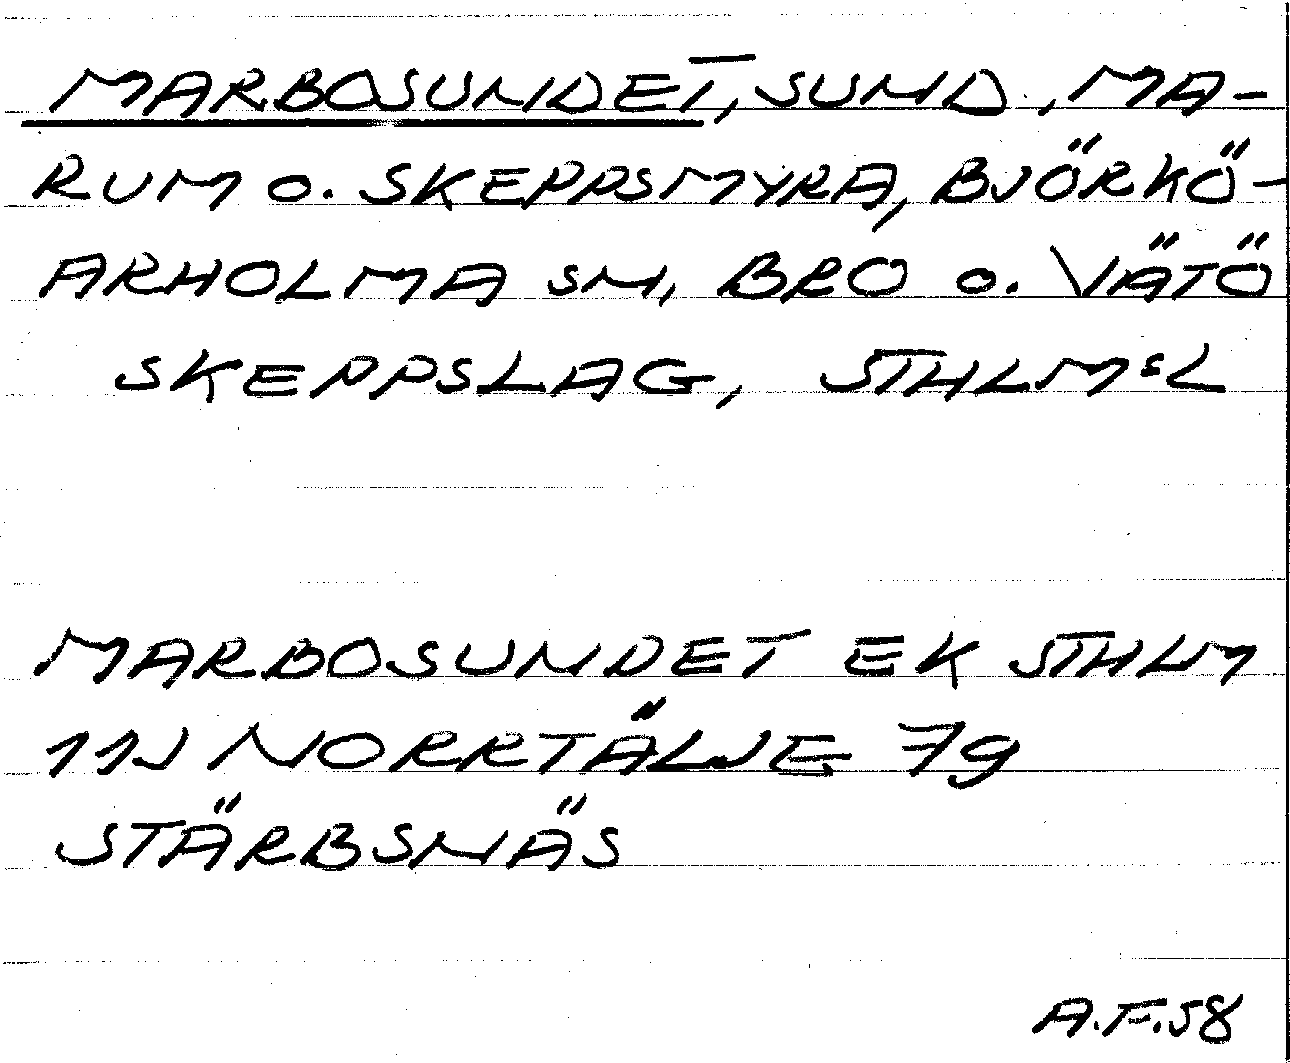 MARBOSUNDET, SUND, MA-
RUM o. SKEPPSMYRA, BJÖRKÖ-
ARHOLMA SN, BRO o. VÄTÖ
SKEPPSLAG, STHLMSL
MARBOSUNDET EK STHLM
11J NORRTÄLJE 79
STÄRBSNÄS
A.F.58